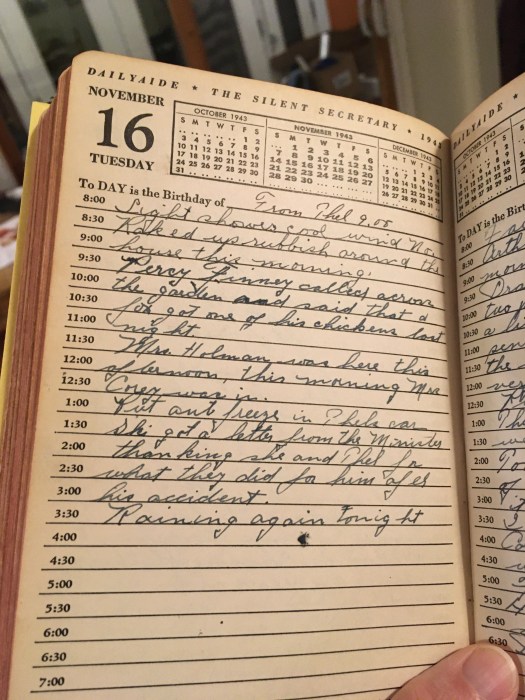 DAILYAIDE * THE SILENT SECRETARY * 1943
NOVEMBER
16
TUESDAY
OCTOBER 1943
S M T W T F S
1 2
3 4 5 6 7 8 9
10 11 12 13 14 15 16
17 18 19 20 21 22 23
24 25 26 27 28 29 30
31
NOVEMBER 1943
S M T W T F S
1 2 3 4 5 6
7 8 9 10 11 12 13
14 15 16 17 18 19 20
21 22 23 24 25 26 27
28 29 30
DECEMBER 1943
To DAY is the Birthday of From Phel 9.00
8:00 Light shower cool wind Nor
8:30 Raked up rubbish around the
9:00 house this morning.
9:30 Percy Finney called across
10:00 the garden and said that a
10:30 fox got one of his chickens last
11:00 night
11:30 Mrs. Holman was here this
12:00 afternoon, this morning Mrs
12:30 Corey was in.
1:00 Put ant freeze in Phels car
1:30 Ski got a letter from the Minister
2:00 thanking she and Phel for
2:30 what they did for him after
3:00 his accident.
3:30 Raining again tonight
4:00
4:30
5:00
5:30
6:00
6:30
7:00